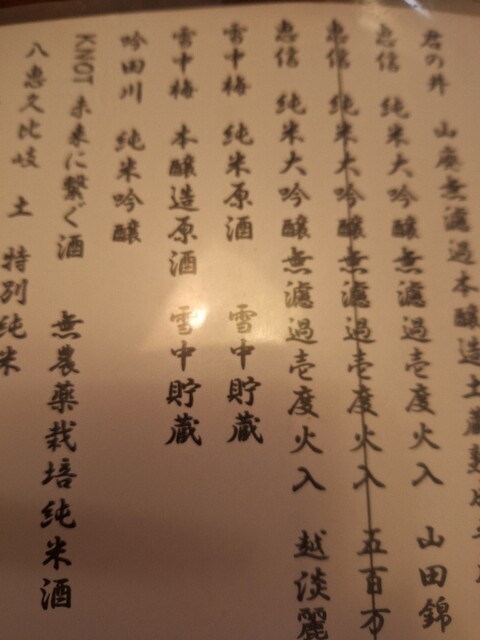 君の井 山廃無濾過本醸造土蔵
恵信 純米大吟醸無濾過壱度火入 山田錦
恵信 純米大吟醸無濾過壱度火入 五百万
恵信 純米大吟醸無濾過壱度火入 越淡麗
雪中梅 純米原酒 雪中貯蔵
雪中梅 本醸造原酒 雪中貯蔵
吟田川 純米吟醸
KNOT 未来に繋ぐ酒 無農薬栽培純米酒
八恵久比岐 土 特別純米